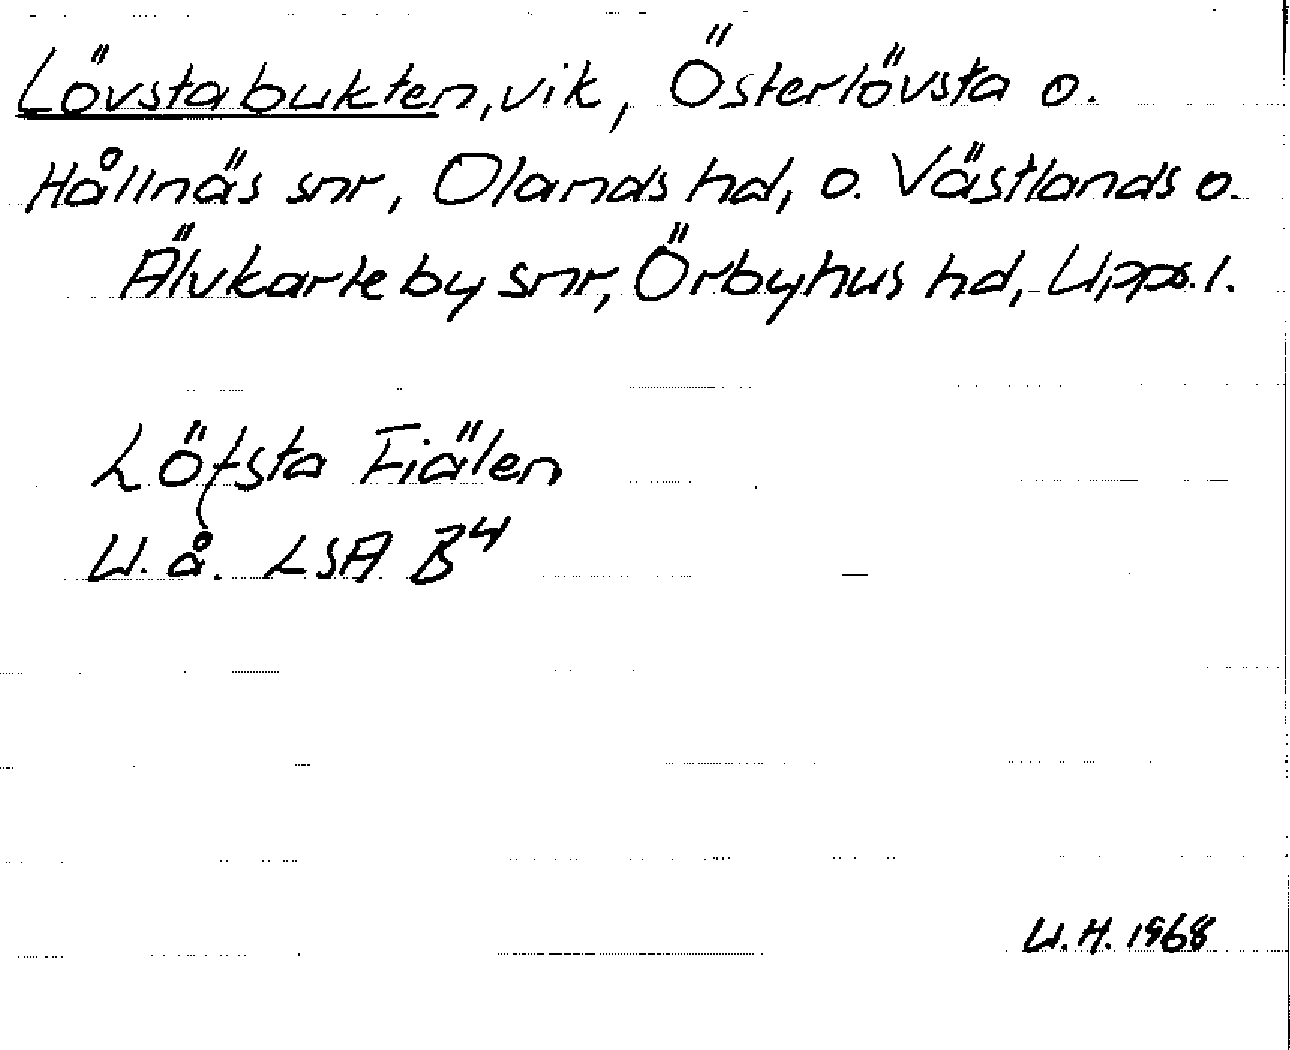 Lövstabukten, vik, Österlövsta o.
Hållnäs snr, Olands hd, o. Västlands o.
Älvkarleby snr, Örbyhus hd, Upps.l.
Löfsta Fiälen
U.å. LSA B4
U.H. 1968